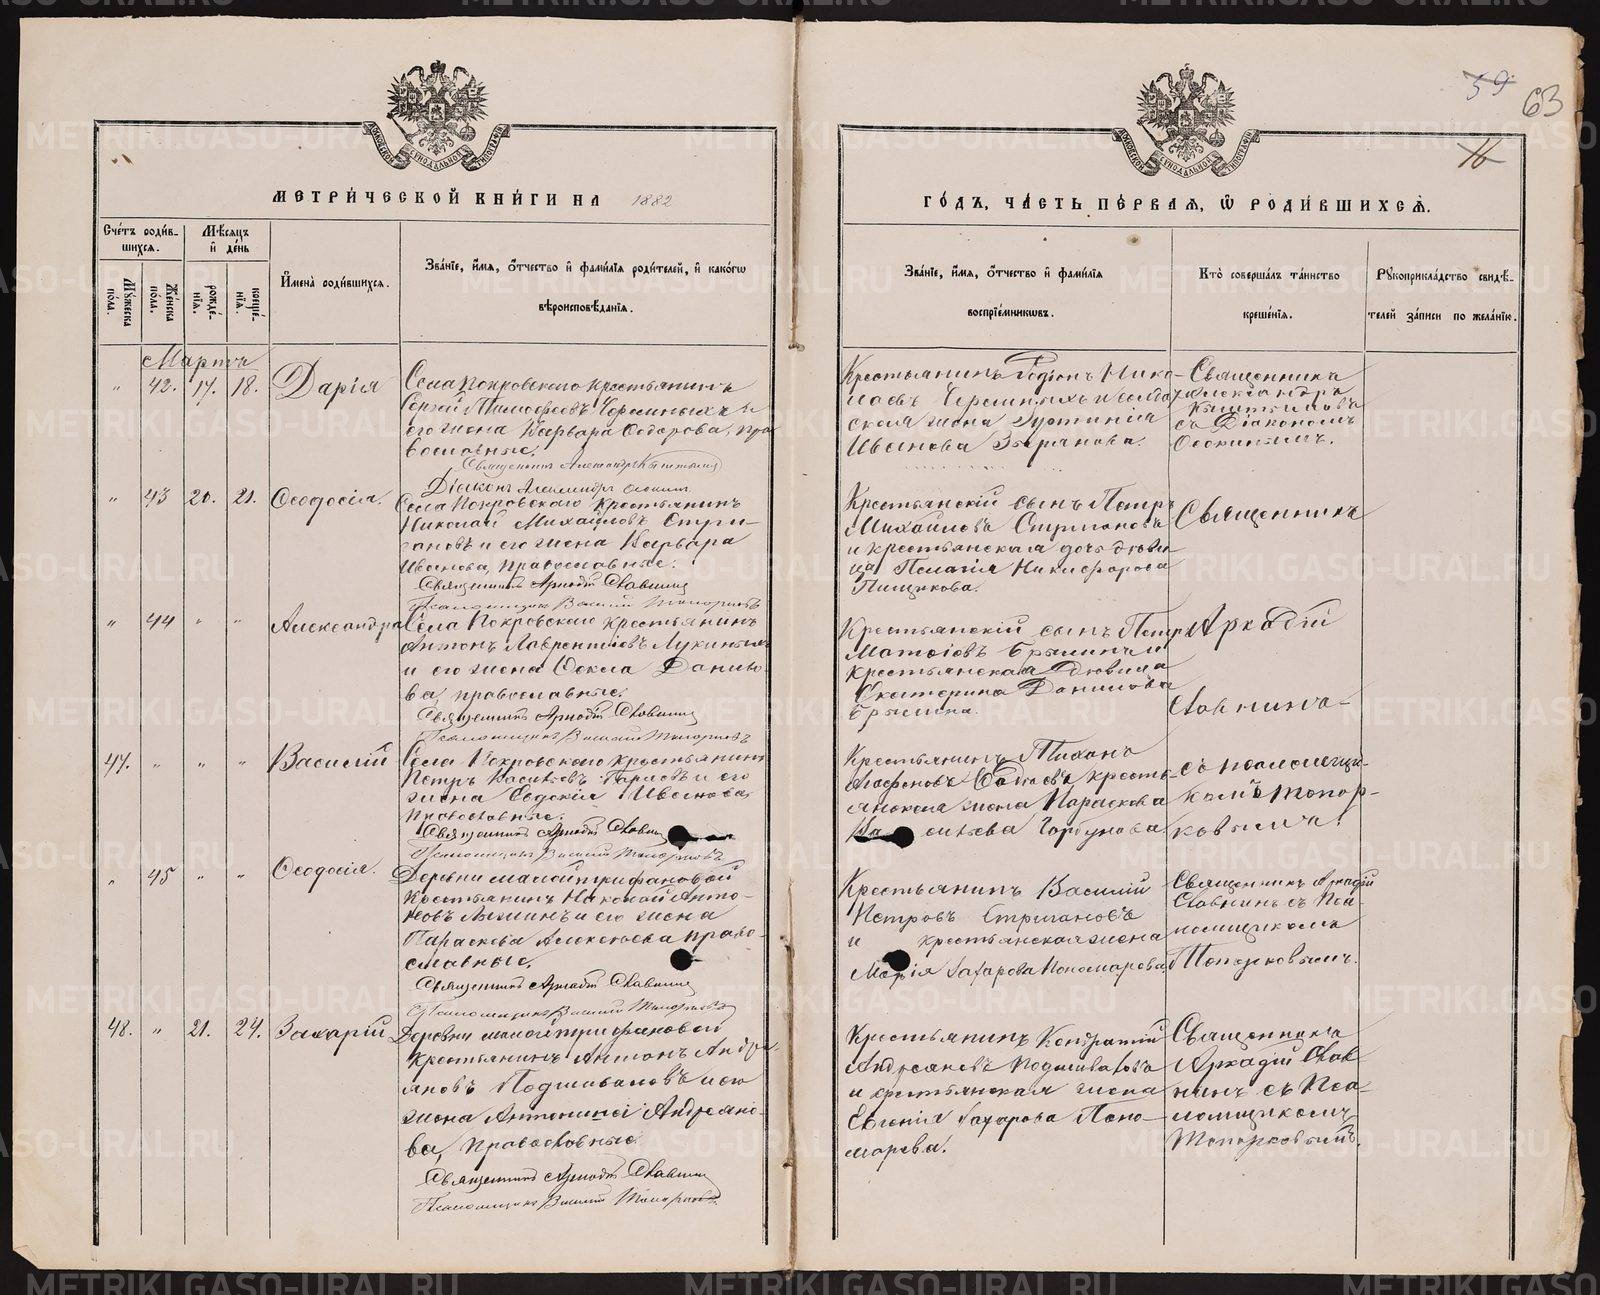 59
63
16
МЕТРИ́ЧЕСКОЙ КНИ́ГИ НА 1882
ГО́ДЪ, ЧА́СТЬ ПЕ́РВАЯ, Ѡ РОДИ́ВШИХСЯ.
Сче́тъ роди́в-
шихся.
Мѣ́сяцъ
и҆ де́нь
Мꙋ́жеска по́ла.
Же́нска по́ла.
рожде́-
нїя.
креще́-
нїя.
И҆мена̀ роди́вшихся.
Зва́нїе, и҆́мя, ѻ҆́тчество и҆ фами́лїя роди́телей, и҆ како́гѡ
вѣроисповѣ́данїя.
Зва́нїе, и҆́мя, ѻ҆́тчество и҆ фами́лїя
воспрїе́мникѡвъ.
Кто̀ соверша́лъ та́инство
креще́нїя.
Рꙋкоприкла́дство свидѣ́-
телей за́писи по жела́нїю.
Мартъ
" 42. 17. 18. Дарія
Села Покровскаго крестьянинъ
Сергій Тимофеевъ Черемныхъ и
его жена Варвара Федорова, пра
вославные.
Священникъ Александръ
Діаконъ Александръ
Крестьянинъ Родіонъ Нико-
лаевъ Черемныхъ и солдат
ская жена Устинія
Иванова Зырянова.
Священникъ
Александръ
съ Діакономъ
" 43 20. 21. Ѳеодосія.
Села Покровскаго крестьянинъ
Николай Михайловъ Стри-
гановъ и его жена Варвара
Иванова, православные.
Священникъ Аркадій Славнинъ
Псаломщикъ Василій Топорковъ
Крестьянскій сынъ Петръ
Михайловъ Стригановъ
и крестьянская дочь дѣви-
ца Пелагія Никифорова
Пищикова.
Священникъ
" 44 " " Александра
Села Покровскаго крестьянинъ
Антонъ Лаврентіевъ Лукиныхъ
и его жена Ѳекла Данило-
ва, православные.
Священникъ Аркадій Славнинъ
Псаломщикъ Василій Топорковъ
Крестьянскій сынъ Петръ
Матѳіевъ Брылинъ и
крестьянская дѣвица
Екатерина Данилова
Брылина.
Аркадій
Славнинъ
47. " " " Василій
Села Покровскаго крестьянинъ
Петръ Васильевъ и его
жена Евдокія Иванова,
православные.
Священникъ Аркадій Славнинъ
Псаломщикъ Василій Топорковъ
Крестьянинъ Тихонъ
Агафоновъ кресть-
янская жена Параскева
Васильева Горбунова
съ псаломщи-
комъ Топор-
ковымъ.
" 45 " " Ѳеодосія.
Деревни малой трифановой
Крестьянинъ Николай Анто-
новъ и его жена
Параскева Алексѣева право-
славные.
Священникъ Аркадій Славнинъ
Псаломщикъ Василій Топорковъ
Крестьянинъ Василій
Петровъ Стригановъ
и крестьянская жена
Марія Захарова Пономарева
Священникъ Аркадій
Славнинъ съ Пса-
ломщикомъ
Топорковымъ.
48. " 21. 24. Захарій
Деревни малой трифановой
Крестьянинъ Антонъ Андре-
яновъ Подшиваловъ и его
жена Антонина Андреяно-
ва, православные.
Священникъ Аркадій Славнинъ
Псаломщикъ Василій Топорковъ
Крестьянинъ Кондратій
Андреяновъ Подшиваловъ
и крестьянская жена
Евгенія Захарова Поно-
марева.
Священникъ
Аркадій Слав-
нинъ съ Пса-
ломщикомъ
Топорковымъ.
METRIKI.GASO-URAL.RU